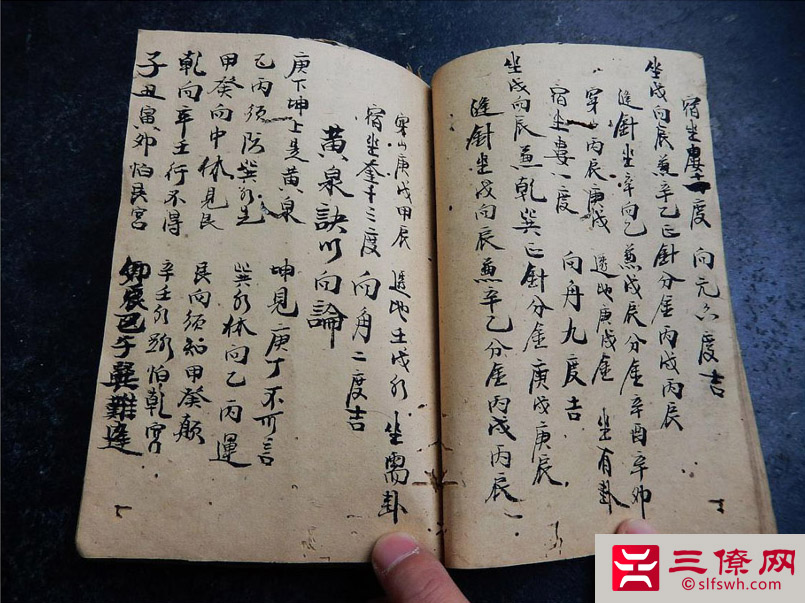 宿坐婁十一度 向亢六度吉
坐戌向辰兼辛乙正針分金丙戌丙辰
縫針坐辛向乙 兼戌辰分金辛酉辛卯
穿山丙辰庚戌 透地庚戌金 坐有卦
宿坐婁八度 向角九度吉
坐戌向辰兼乾巽正針分金庚戌庚辰
縫針坐戌向辰兼辛乙分金丙戌丙辰
穿山庚戌甲辰 透地土戌 坐需卦
宿坐奎十三度 向角二度吉
黃泉訣以向論
庚下坤上是黃泉 坤見庚丁不可言
乙丙須防巽水先 巽水休向乙丙運
甲癸向中休見艮 艮向須知甲癸顛
乾向辛壬行不得 辛壬水路怕乾宮
子丑寅卯怕艮宮
卯辰巳午巽難逢
三僚网
slfswh.com